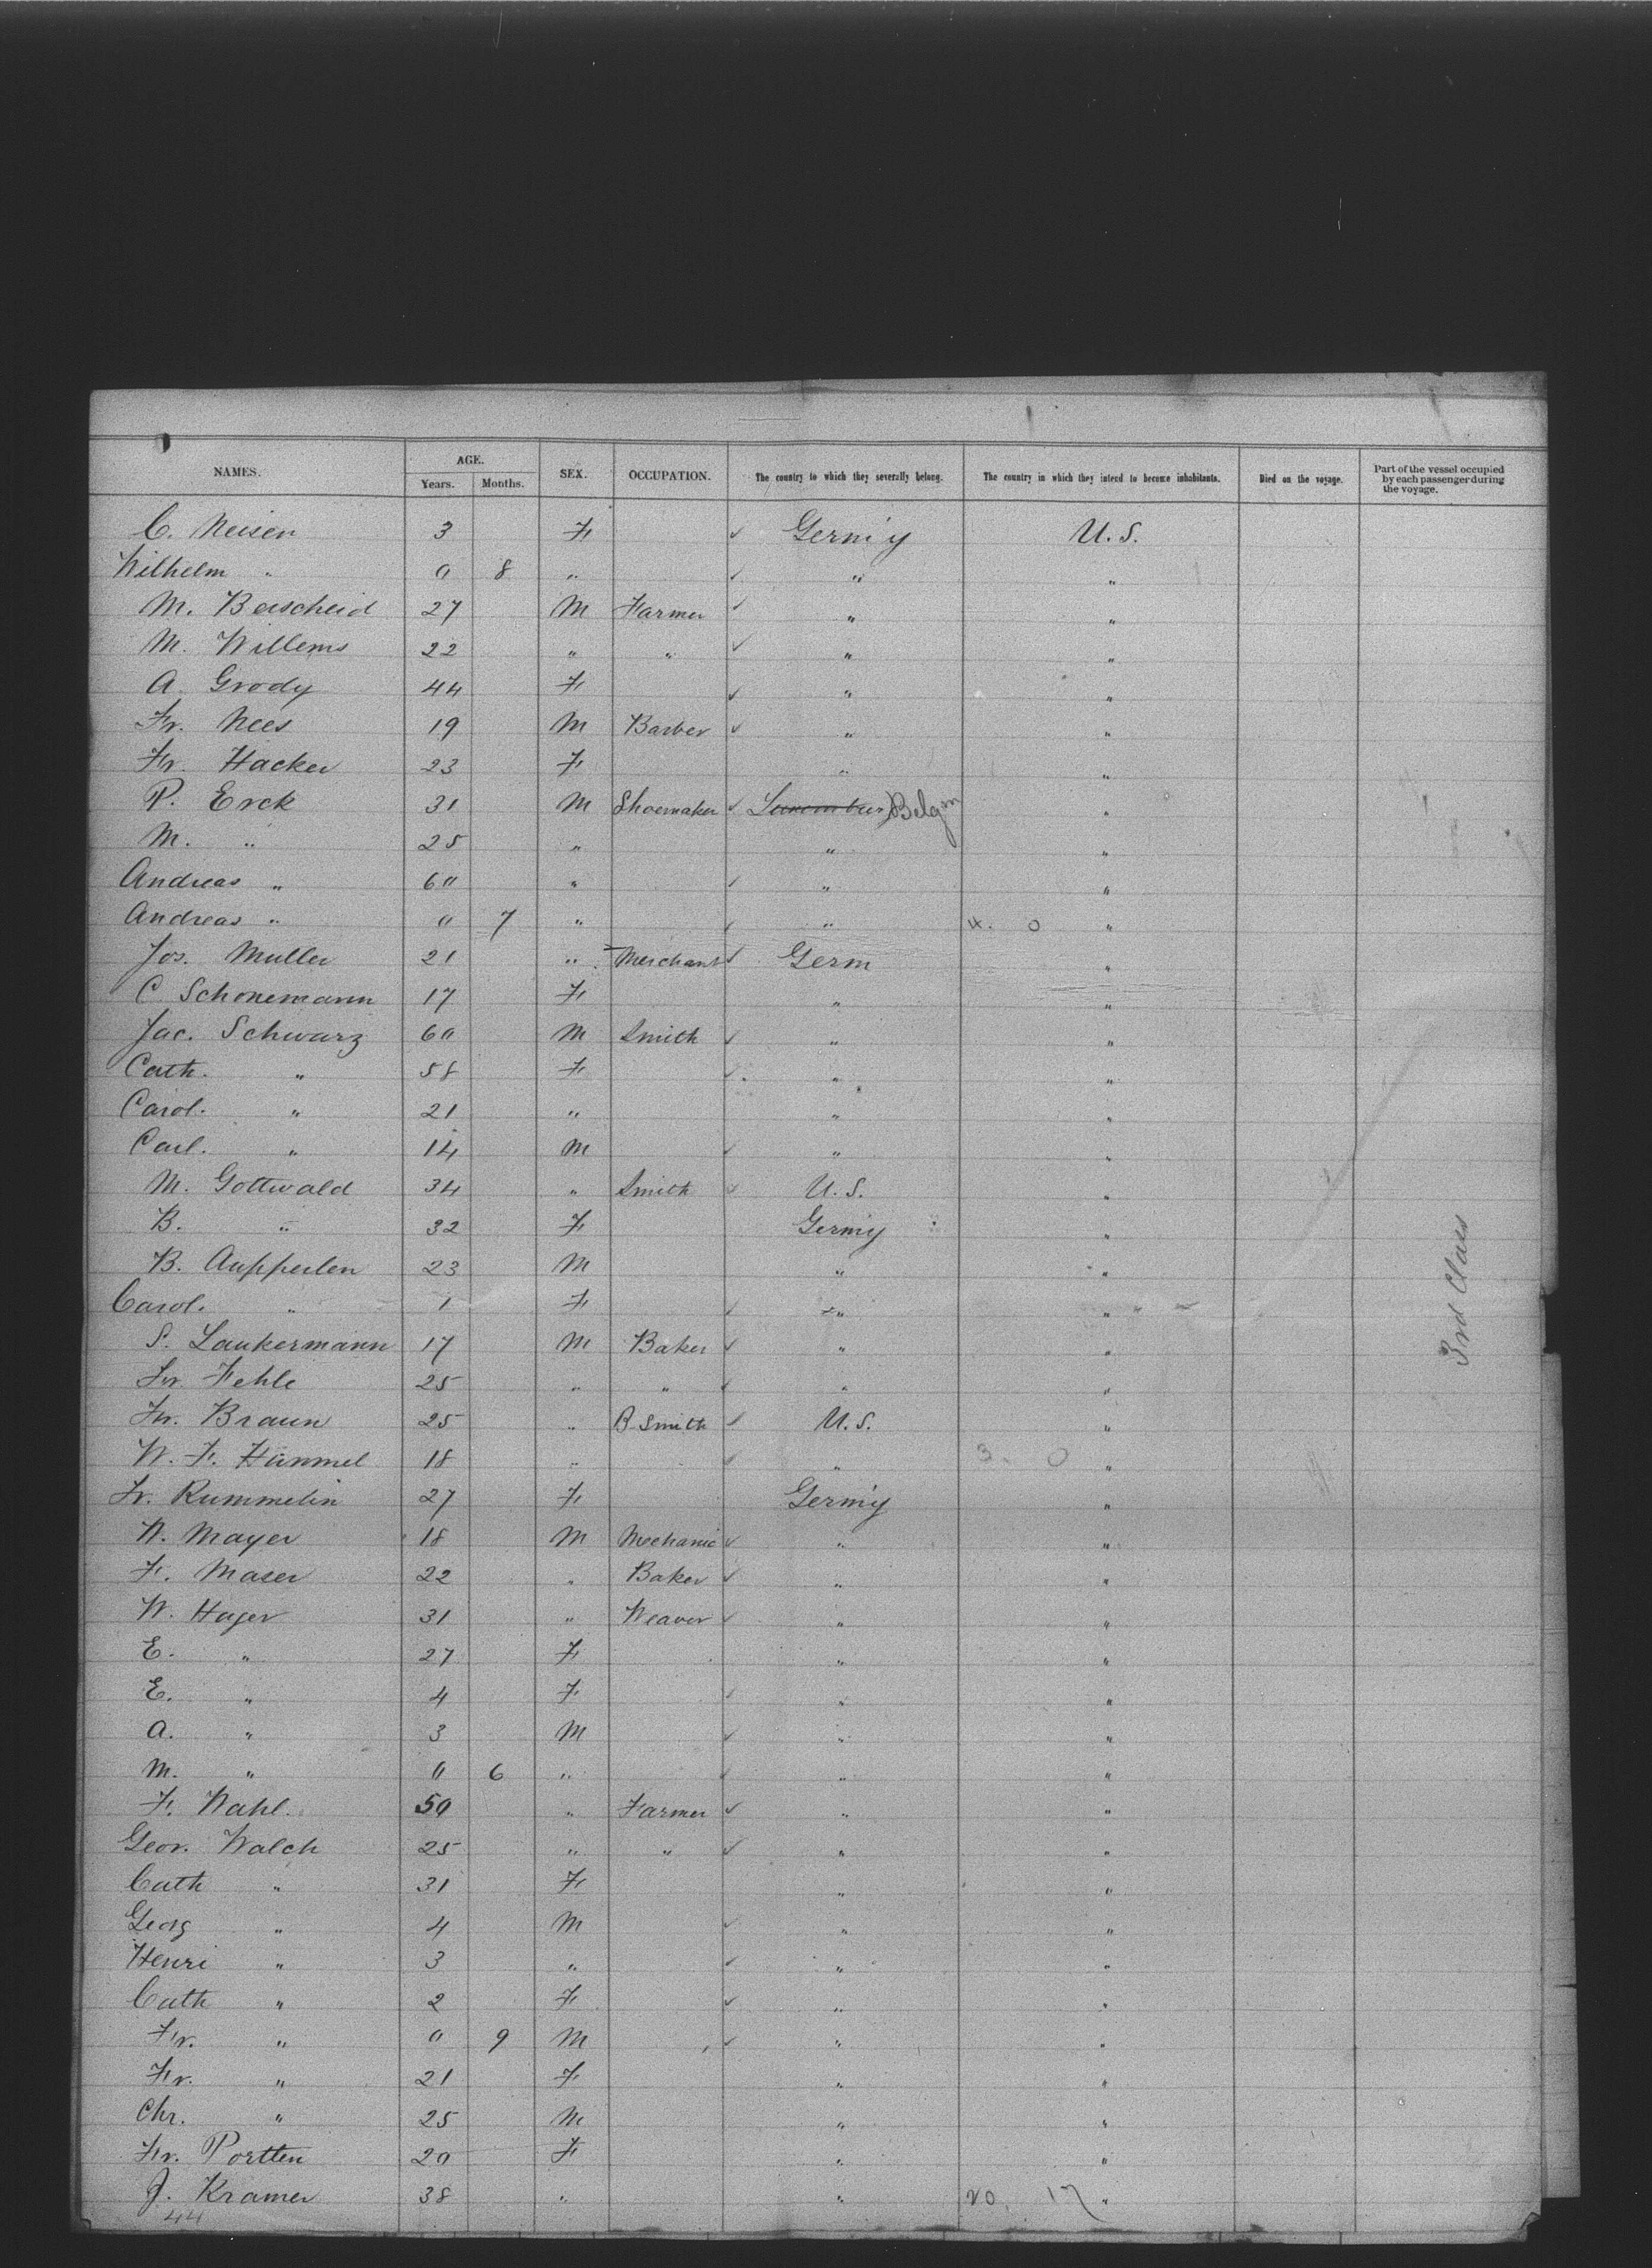 NAMES. AGE. SEX. OCCUPATION. The country to which they severally belong. The country in which they intend to become inhabitants. Died on the voyage. Part of the vessel occupied by each passenger during the voyage.
Years. Months.
C. Neisen 3 F Germ'y U.S.
Wilhelm " 0 8 " " "
M. Berscheid 27 M Farmer " "
M. Willems 22 " " " "
A. Grody 44 F " "
Fr. Nees 19 M Barber " "
Fr. Hacker 23 F " "
P. Erck 31 M Shoemaker Luxemburg Belgm "
M. " 25 " " "
Andreas " 60 " " "
Andreas " 0 7 " " 4. 0 "
Jos. Muller 21 " Merchant Germ "
C Schonemann 17 F " "
Jac. Schwarz 60 M Smith " "
Cath. " 58 F " "
Carol. " 21 " " "
Carl. " 14 M " "
M. Gottwald 34 " Smith U.S. "
B. " 32 F Germ'y "
B. Aupperlen 23 M " "
Carol. " 1 F " "
S. Laukermann 17 M Baker " "
Fr. Fehle 25 " " " "
Fr. Braun 25 " B Smith U.S. "
W. F. Hümmel 18 " " 3. 0 "
Fr. Rummelin 27 F Germ'y "
W. Mayer 18 M Mechanic " "
F. Maser 22 " Baker " "
W. Hager 31 " Weaver " "
E. " 27 F " "
E. " 4 F " "
A. " 3 M " "
M. " 0 6 " " "
F. Wahl. 50 " Farmer " "
Geor. Walch 25 " " " "
Cath " 31 F " "
Georg " 4 M " "
Henri " 3 " " "
Cath " 2 F " "
Fr. " 0 9 M " "
Fr. " 21 F " "
Chr. " 25 M " "
Fr. Portten 20 F " "
J. Kramer 38 " " 20. 17 "
44
3rd Class